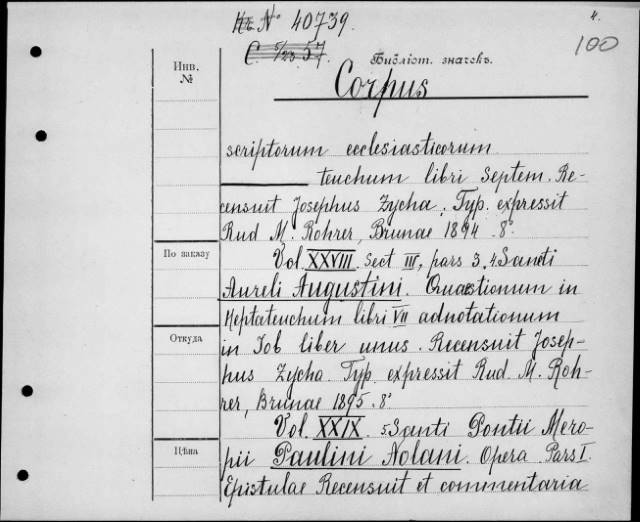 Къ № 40739.
4.
100
C. 5/23.57.
Библіот. значекъ.
Инв.
№
Corpus
scriptorum ecclesiasticorum
teuchum libri septem. Re-
censuit Josephus Zycha. Typ. expressit
Rud M. Rohrer, Brunae 1894. 8°
По заказу
Vol. XXVIII. Sect III, pars 3. 4 Sancti
Aureli Augustini. Quaestionum in
Heptateuchum libri VII adnotationum
Откуда
in Iob liber unus. Recensuit Josep-
hus Zycha. Typ. expressit Rud M. Roh-
rer, Brunae 1895. 8°
Vol. XXIX. Santi Pontii Mero-
Цѣна
pii Paulini Nolani. Opera Pars I.
Epistulae Recensuit et commentaria